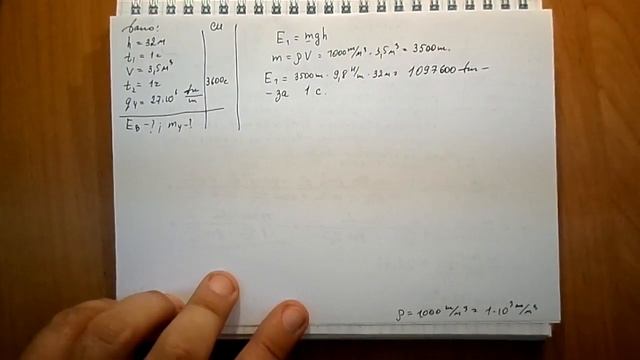 Дано:
h = 32м
t₁ = 1с
V = 3,5м³
t₂ = 1г
q_y = 27·10⁶ Дж/кг
E_в -?; m_y -?
СИ
3600с
E₁ = mgh
m = ρV = 1000 кг/м³ · 3,5м³ = 3500кг.
E₁ = 3500кг · 9,8 Н/кг · 32м = 1097600 Дж –
– за 1 с.
ρ = 1000 кг/м³ = 1·10³ кг/м³